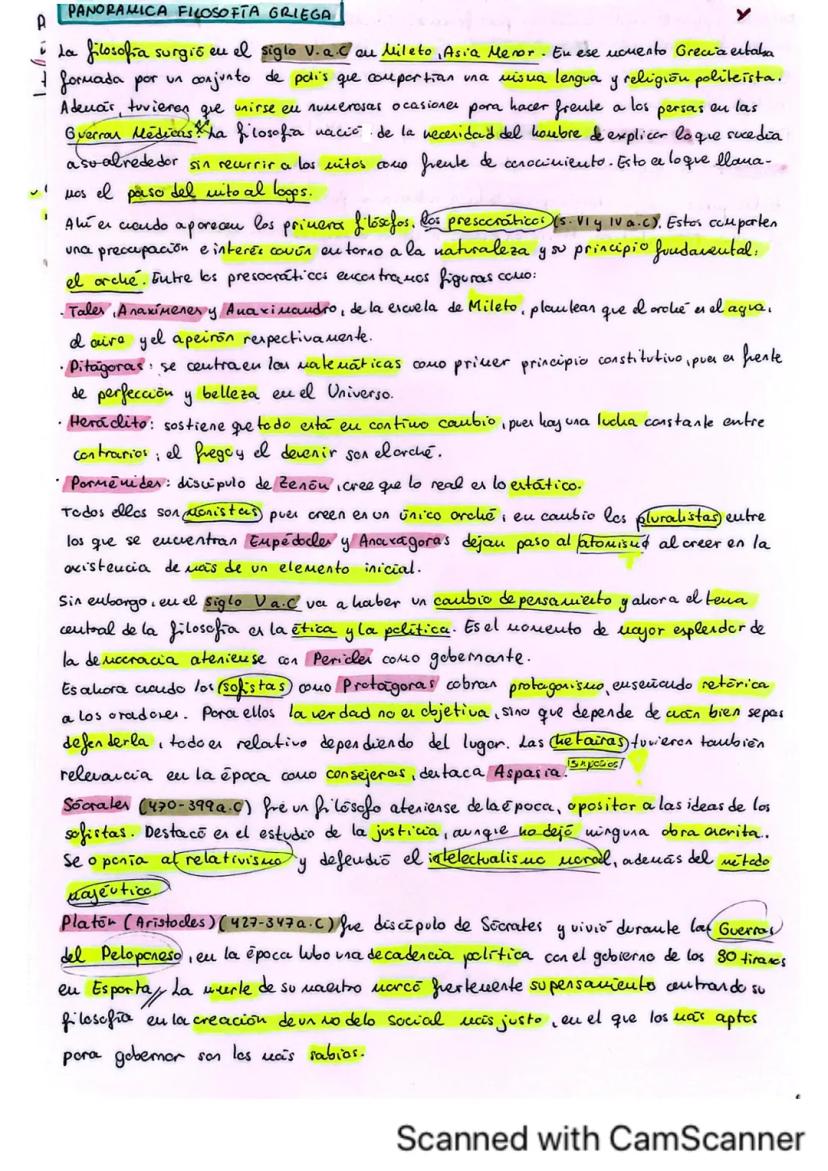 PANORAMICA FILOSOFÍA GRIEGA
La filosofía surgió en el siglo V.a.C en Mileto, Asia Menor. En ese momento Grecia estaba
formada por un conjunto de polis que compartían una misma lengua y religión politeísta.
Además, tuvieron que unirse en numerosas ocasiones para hacer frente a los persas en las
Guerras Médicas. La filosofía nació de la necesidad del hombre de explicar lo que sucedía
a su alrededor sin recurrir a los mitos como fuente de conocimiento. Esto es lo que llama-
mos el paso del mito al logos.
Ahí es cuando aparecen los primeros filósofos, los presocráticos (s. VI y IV a.C). Estos comparten
una preocupación e interés común en torno a la naturaleza y su principio fundamental:
el arché. Entre los presocráticos encontramos figuras como:
· Tales, Anaxímenes y Anaximandro, de la escuela de Mileto, plantean que el arché es el agua,
el aire y el apeirón respectivamente.
· Pitágoras: se centra en las matemáticas como primer principio constitutivo, pues es fuente
de perfección y belleza en el Universo.
· Heráclito: sostiene que todo está en continuo cambio, pues hay una lucha constante entre
contrarios; el fuego y el devenir son el arché.
· Parménides: discípulo de Zenón, cree que lo real es lo estático.
Todos ellos son monistas pues creen en un único arché, en cambio los pluralistas entre
los que se encuentran Empédocles y Anaxágoras dejan paso al atomismo al creer en la
existencia de más de un elemento inicial.
Sin embargo, en el siglo V a.C va a haber un cambio de pensamiento y ahora el tema
central de la filosofía es la ética y la política. Es el momento de mayor esplendor de
la democracia ateniense con Pericles como gobernante.
Es ahora cuando los sofistas como Protágoras cobran protagonismo, enseñando retórica
a los oradores. Para ellos la verdad no es objetiva, sino que depende de cuán bien sepas
defenderla, todo es relativo dependiendo del lugar. Las hetairas tuvieron también
relevancia en la época como consejeras, destaca Aspasia.
Sócrates (470-399a.C) fue un filósofo ateniense de la época, opositor a las ideas de los
sofistas. Destacó en el estudio de la justicia, aunque no dejó ninguna obra escrita.
Se oponía al relativismo y defendió el intelectualismo moral, además del método
mayéutico
Platón (Aristocles) (427-347a.C) fue discípulo de Sócrates y vivió durante las Guerras
del Peloponeso, en la época hubo una decadencia política con el gobierno de los 30 tiranos
en Esparta // La muerte de su maestro marcó fuertemente su pensamiento centrando su
filosofía en la creación de un modelo social más justo, en el que los más aptos
para gobernar son los más sabios.
Scanned with CamScanner